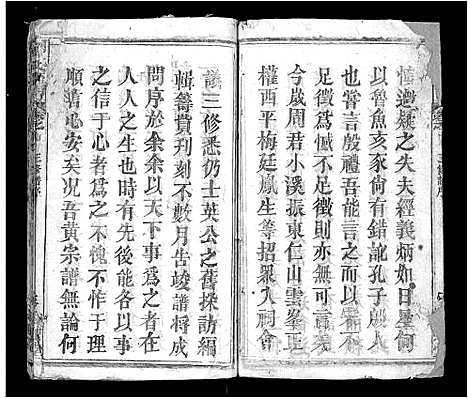 懂過疑之失夫經義炳如日星倘
以魯魚亥豕尚有錯訛孔子殷人
也嘗言殷禮吾能言之而以杞不
足徵為憾不則非無可言矣
今歲周君小溪振東仁山雲峯正
權西平梅廷鳳生等招眾入祠會
議三修悉仍士英公之舊採訪編
輯籌貲刊刻不數月告竣譜將成
問序於余余以天下事為之在
人人之生也時有先後皆以事
之信于心者為之不愧不怍于理
順情心安矣况吾黃宗譜無論何